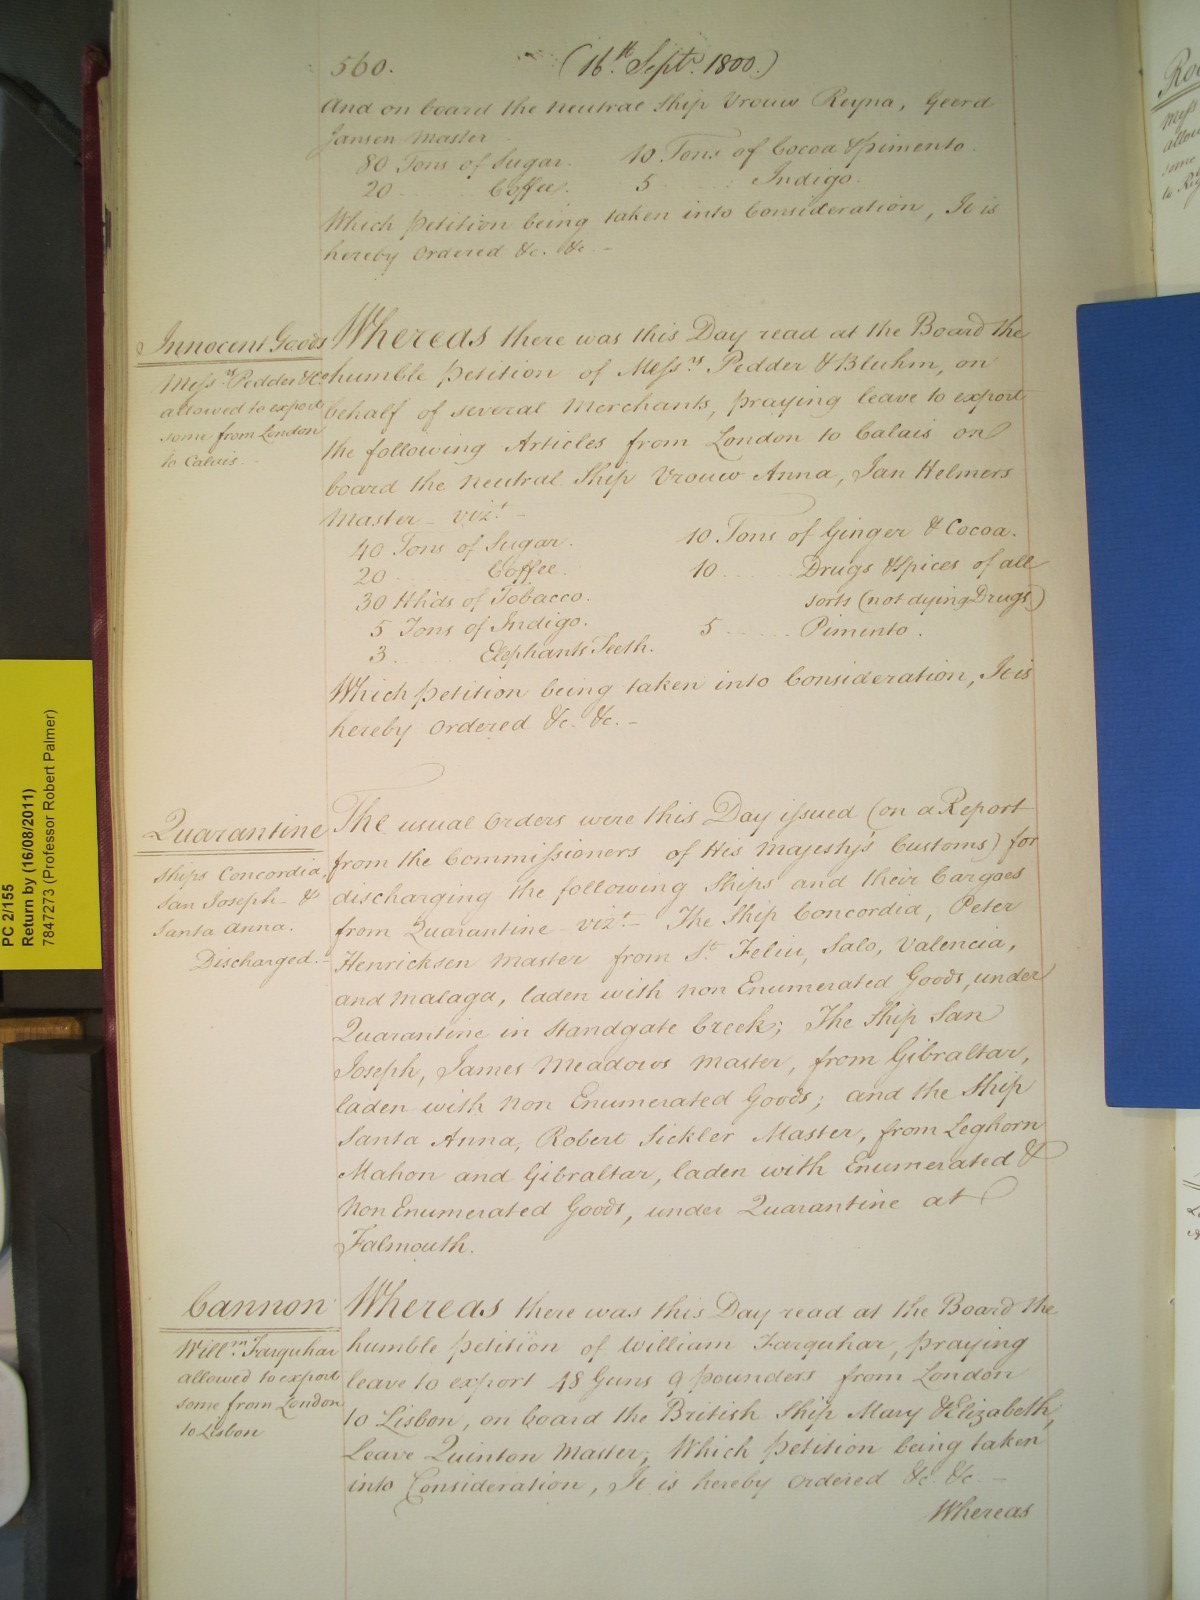 560. (16th. Septr. 1800.)
And on board the Neutral Ship Vrouw Reyna, Geerd
Jansen Master
80 Tons of Sugar. 10 Tons of Cocoa & Pimento.
20 ..... Coffee. 5 ..... Indigo.
Which Petition being taken into Consideration, It is
hereby Ordered &c. &c. —
Innocent Goods
Messrs. Pedder & Co
allowed to export
some from London
to Calais.
Whereas there was this Day read at the Board the
humble Petition of Messrs. Pedder & Bluhm, on
behalf of several Merchants, praying leave to export
the following Articles from London to Calais on
board the Neutral Ship Vrouw Anna, Jan Helmers
Master — vizt. —
40 Tons of Sugar. 10 Tons of Ginger & Cocoa.
20 ..... Coffee. 10 ..... Drugs & Spices of all
30 Hhds of Tobacco. sorts (not dying Drugs)
5 Tons of Indigo. 5 ..... Pimento.
3 ..... Elephants Teeth.
Which Petition being taken into Consideration, It is
hereby Ordered &c. &c. —
Quarantine
Ships Concordia,
San Joseph — &
Santa Anna.
Discharged. —
The usual Orders were this Day issued (on a Report
from the Commissioners of His Majesty's Customs) for
discharging the following Ships and their Cargoes
from Quarantine — vizt. — The Ship Concordia, Peter
Henricksen Master from St. Feliu, Salo, Valencia,
and Malaga, laden with non Enumerated Goods, under
Quarantine in Standgate Creek; The Ship San
Joseph, James Meadows Master, from Gibraltar,
laden with Non Enumerated Goods; and the Ship
Santa Anna, Robert Sickler Master, from Leghorn
Mahon and Gibraltar, laden with Enumerated &
Non Enumerated Goods, under Quarantine at
Falmouth.
Cannon
Willm. Farquhar
allowed to export
some from London
to Lisbon
Whereas there was this Day read at the Board the
humble Petition of William Farquhar, praying
leave to export 48 Guns 9 pounders from London
to Lisbon, on board the British Ship Mary & Elizabeth,
Leave Quinton Master; Which Petition being taken
into Consideration, It is hereby Ordered &c. &c. —
Whereas
PC 2/155
Return by (16/08/2011)
7847273 (Professor Robert Palmer)